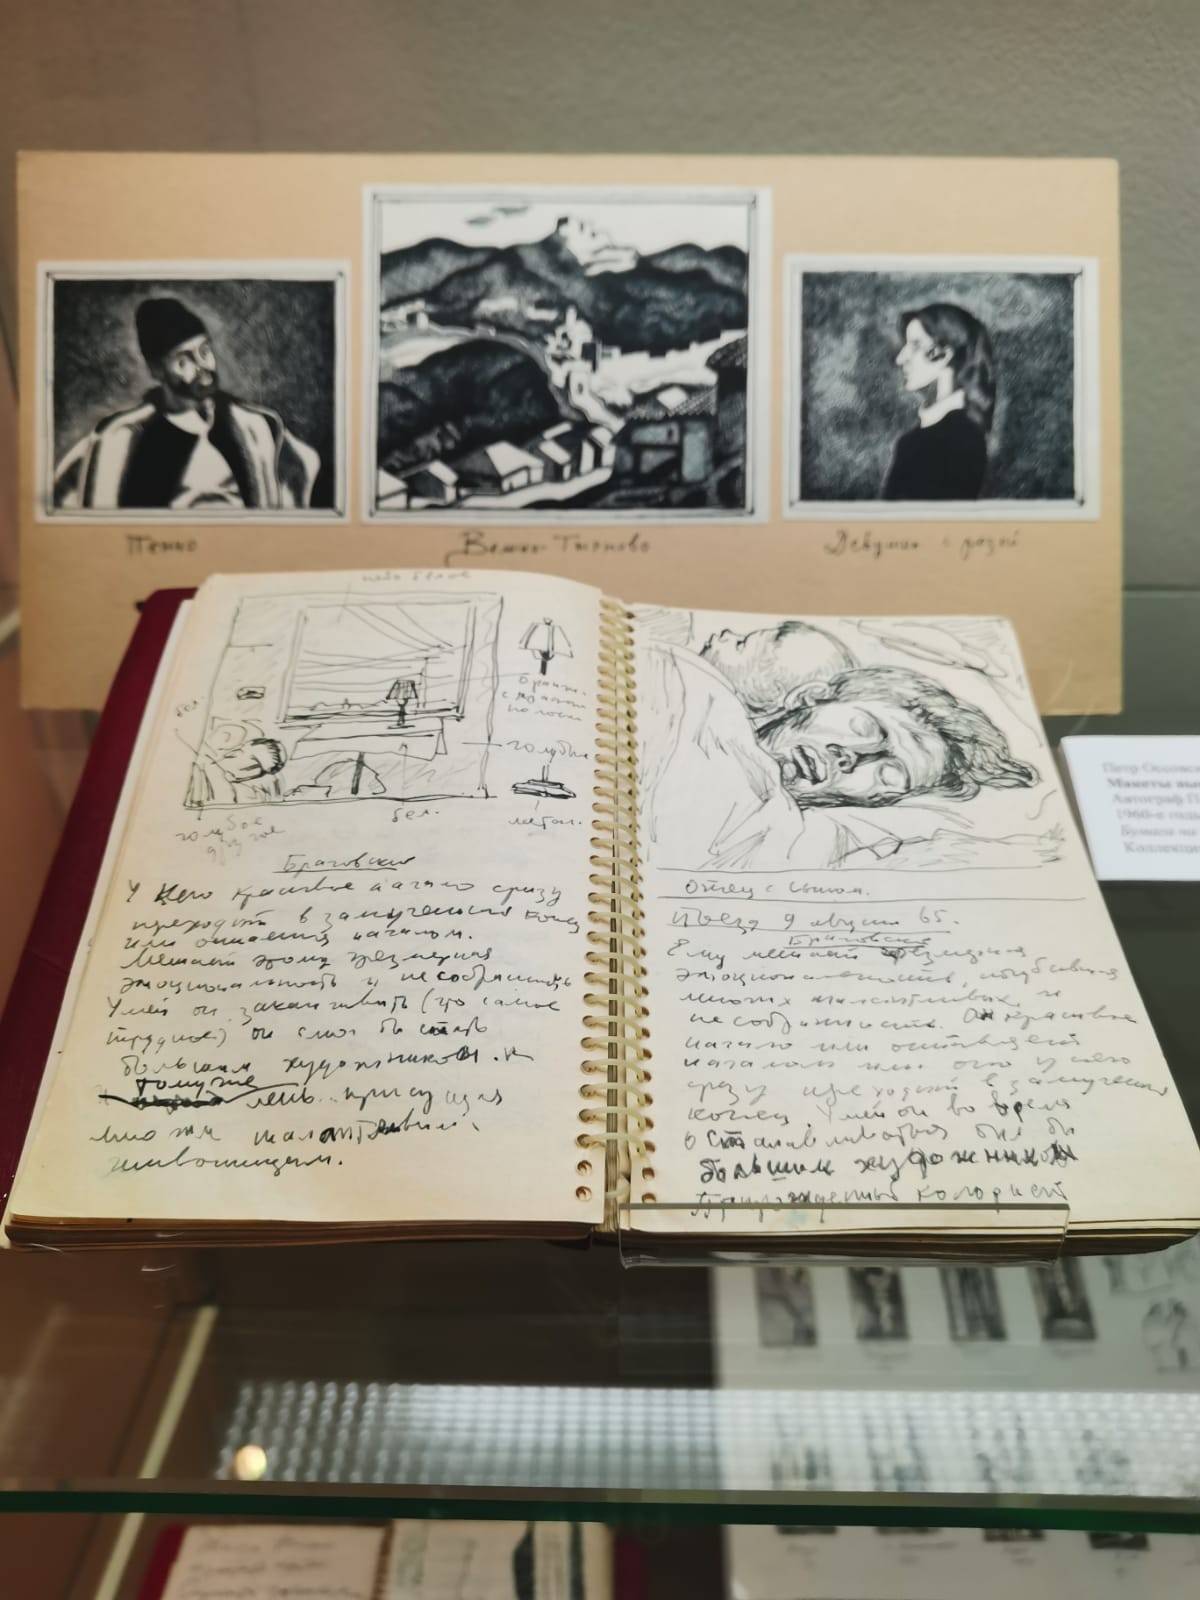 Пенко
Велико Тырново
Девушка с розой
небо белое
бел.
голубые
голубое
другое
бел.
метал.
Браговский
У Него красивое начало сразу
переходит в замученный конец
или остается началом.
Мешает этому чрезмерная
эмоциональность и несобранность
Умей он заканчивать (это самое
трудное) он смог бы стать
большим художником. К
тому же
лень присущая
многим талантливым
живописцам.
Отец с сыном.
Поезд 9 августа 65.
Браговский
Ему мешает чрезмерная
эмоциональность, погубившая
многих талантливых, и
несобранность. Он красивое
начало или оставляет
началом или оно у него
сразу переходит в замученный
конец. Умей он во время
останавливаться был бы
большим художником
Прирожденный колорист
Петр
Макеты
Автограф
1960-е годы
Бумага
Коллекция